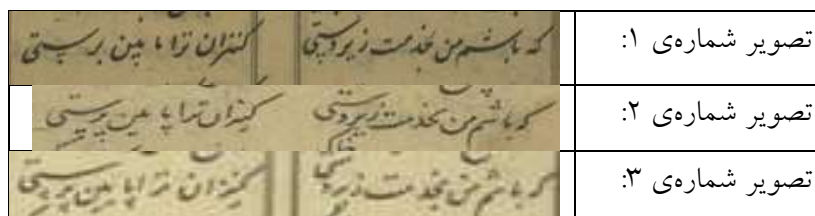 تصویر شماره‌ی ۱: که باشم من بخدمت زیردستی کنیزان ترا پایین پرستی
تصویر شماره‌ی ۲: که باشم من بخدمت زیردستی کنیزان ترا پایین پرستی
تصویر شماره‌ی ۳: که باشم من بخدمت زیردستی کنیزان ترا پایین پرستی